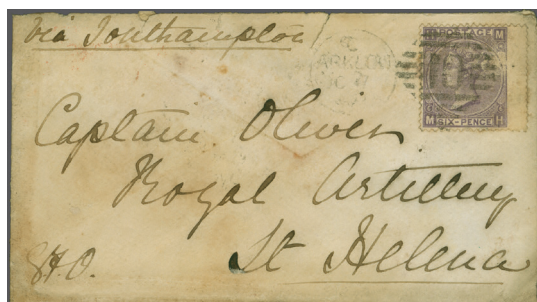 via Southampton
POSTAGE
M
SIX-PENCE
M H
Captain Oliver
Royal Artillery
St Helena